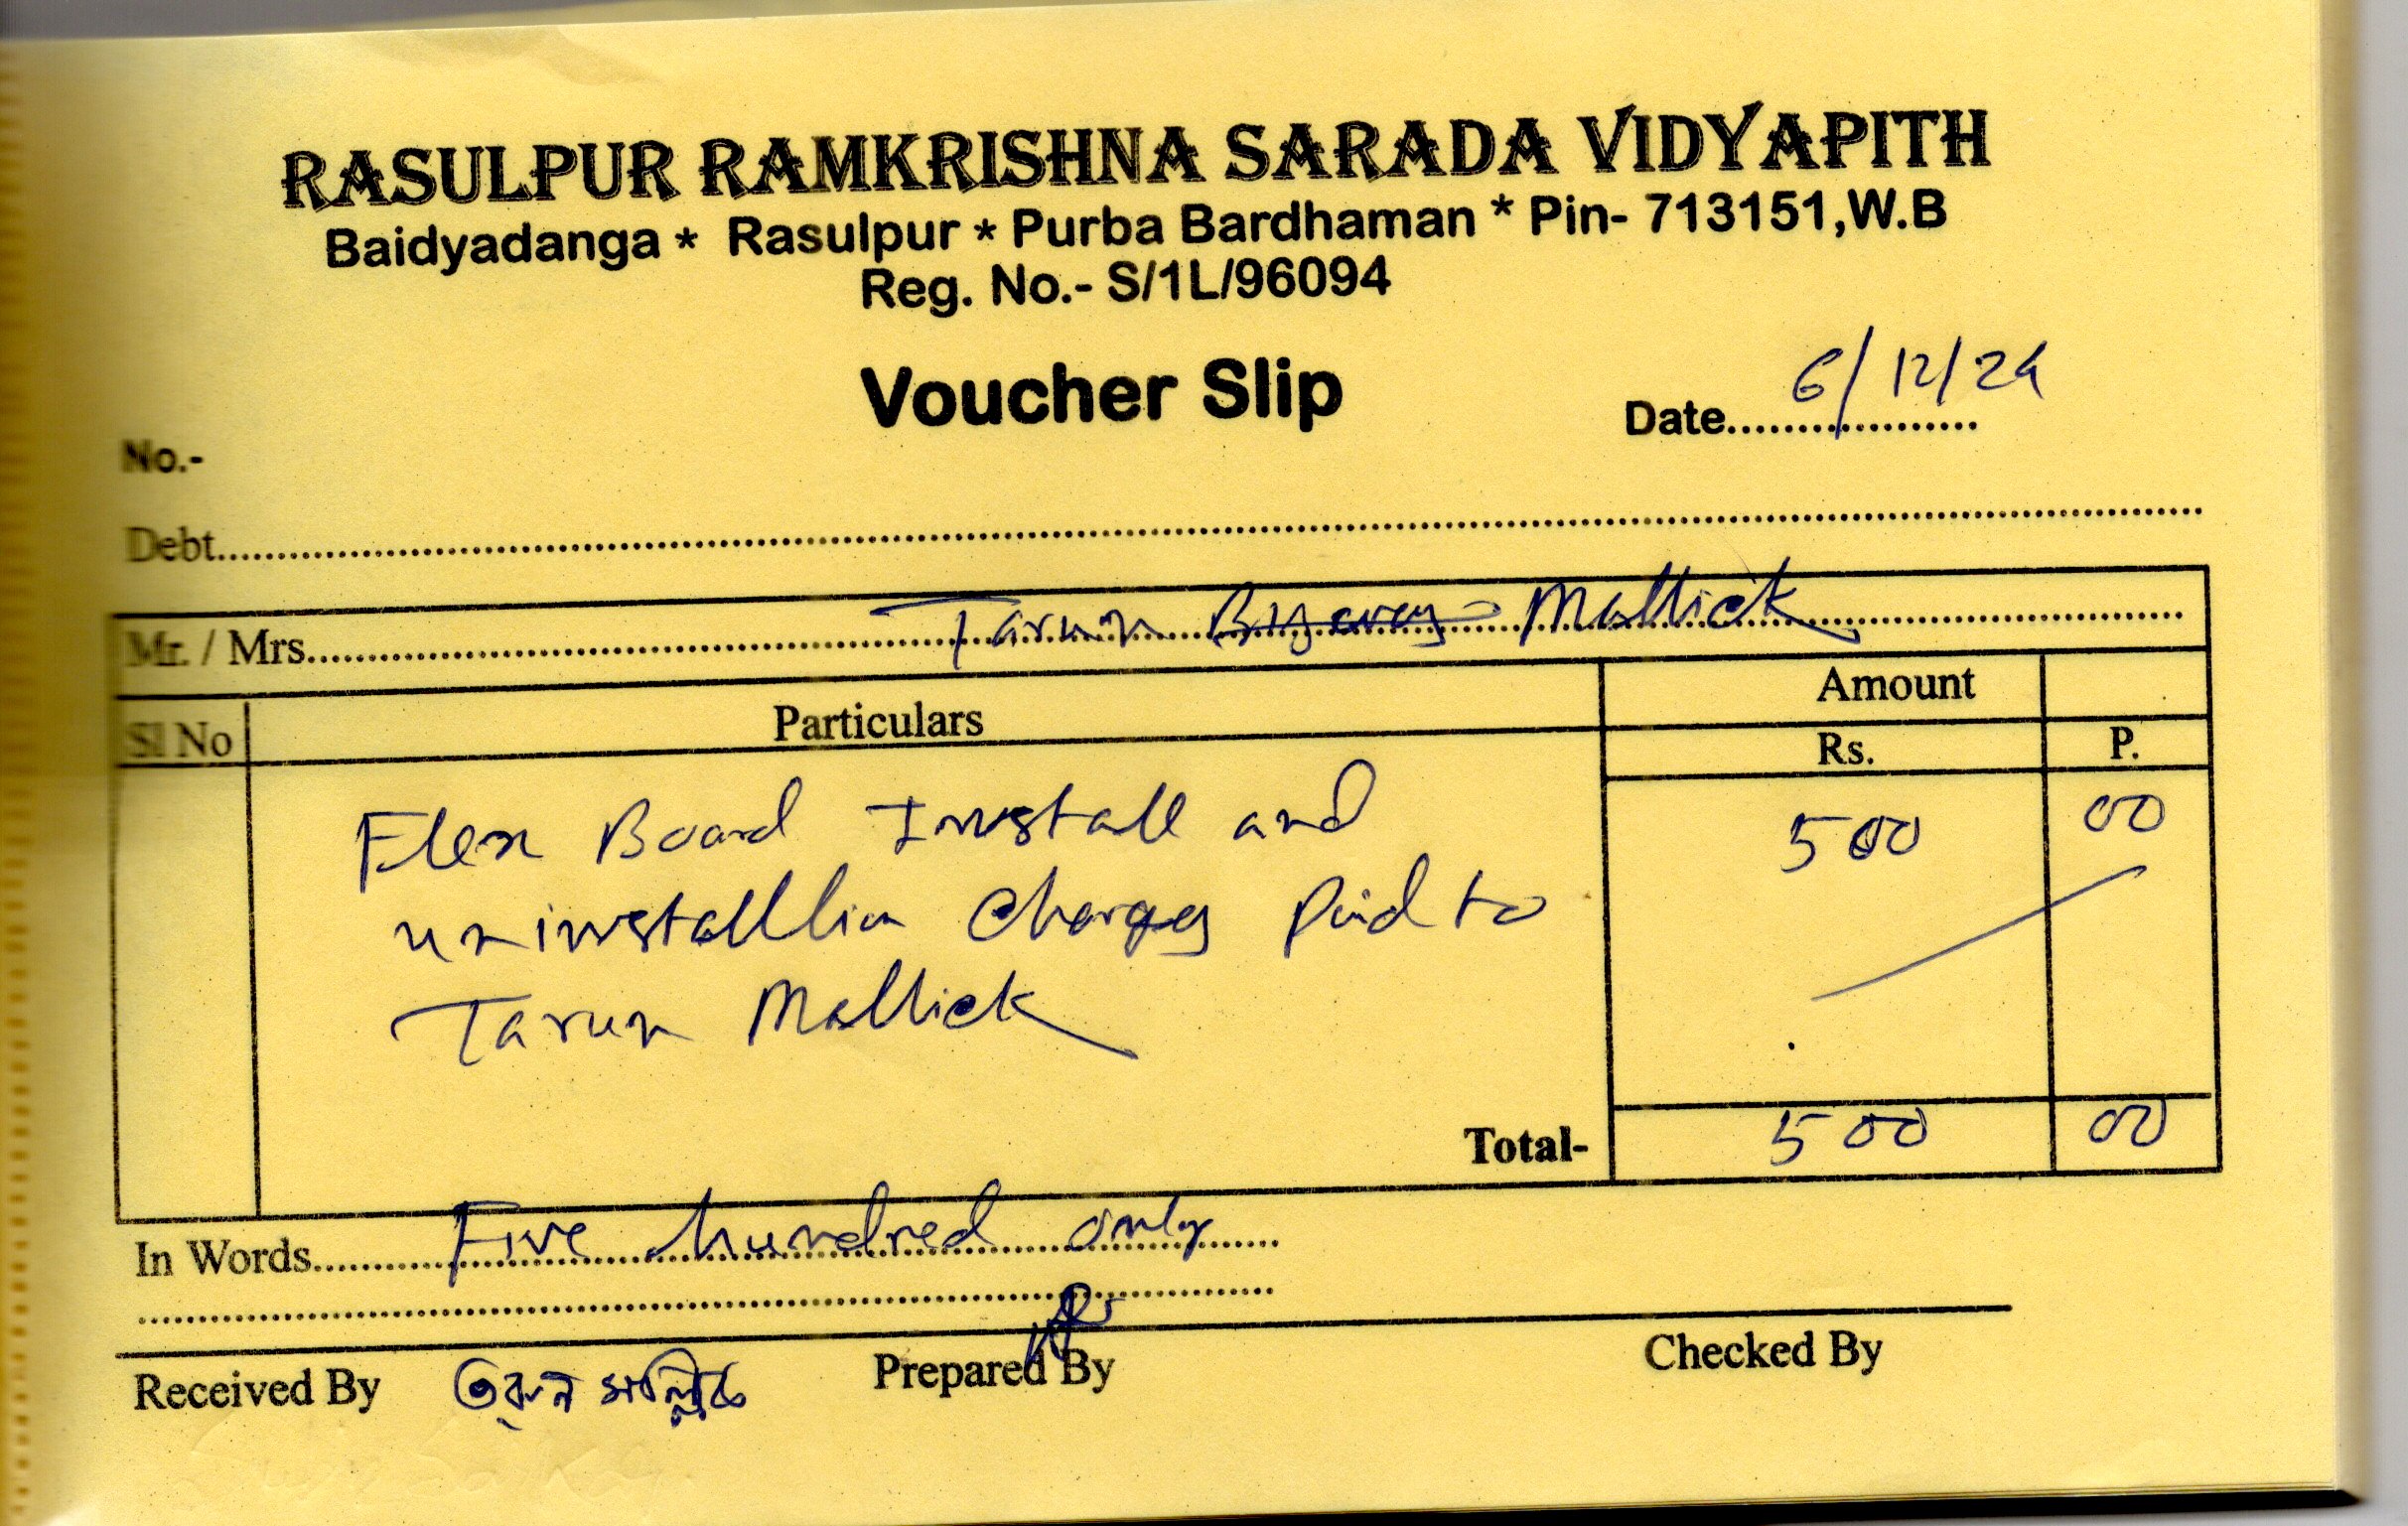 RASULPUR RAMKRISHNA SARADA VIDYAPITH
Baidyadanga * Rasulpur * Purba Bardhaman * Pin- 713151,W.B
Reg. No.- S/1L/96094
Voucher Slip
No.-
Date.................. 6/12/24
Debt
Mr. / Mrs. Tarun Mallick
Sl No Particulars Amount
Rs. P.
Flex Board Install and 500 00
uninstalllion Charges Paid to
Tarun Mallick
Total- 500 00
In Words Five hundred only
Received By তরুন মল্লিক Prepared By Checked By